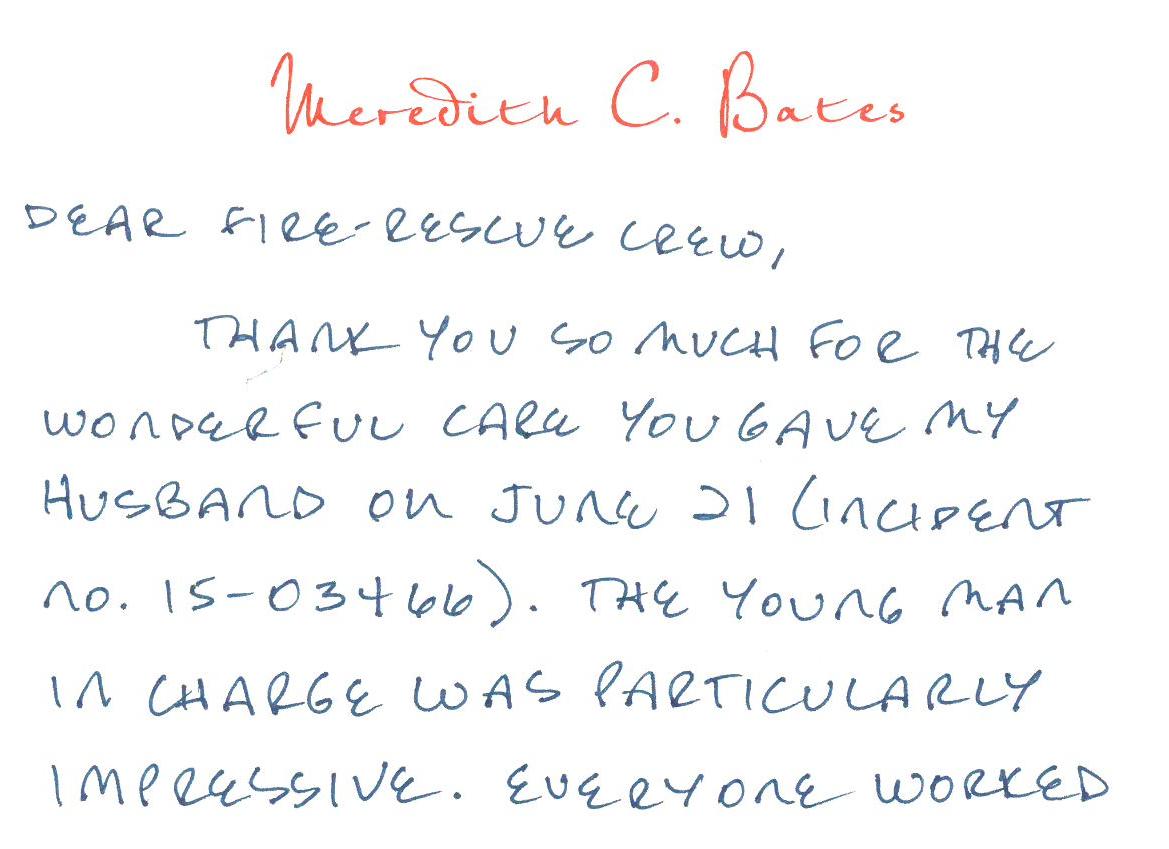 Meredith C. Bates
DEAR FIRE-RESCUE CREW,
THANK YOU SO MUCH FOR THE
WONDERFUL CARE YOU GAVE MY
HUSBAND ON JUNE 21 (INCIDENT
NO. 15-03466). THE YOUNG MAN
IN CHARGE WAS PARTICULARLY
IMPRESSIVE. EVERYONE WORKED